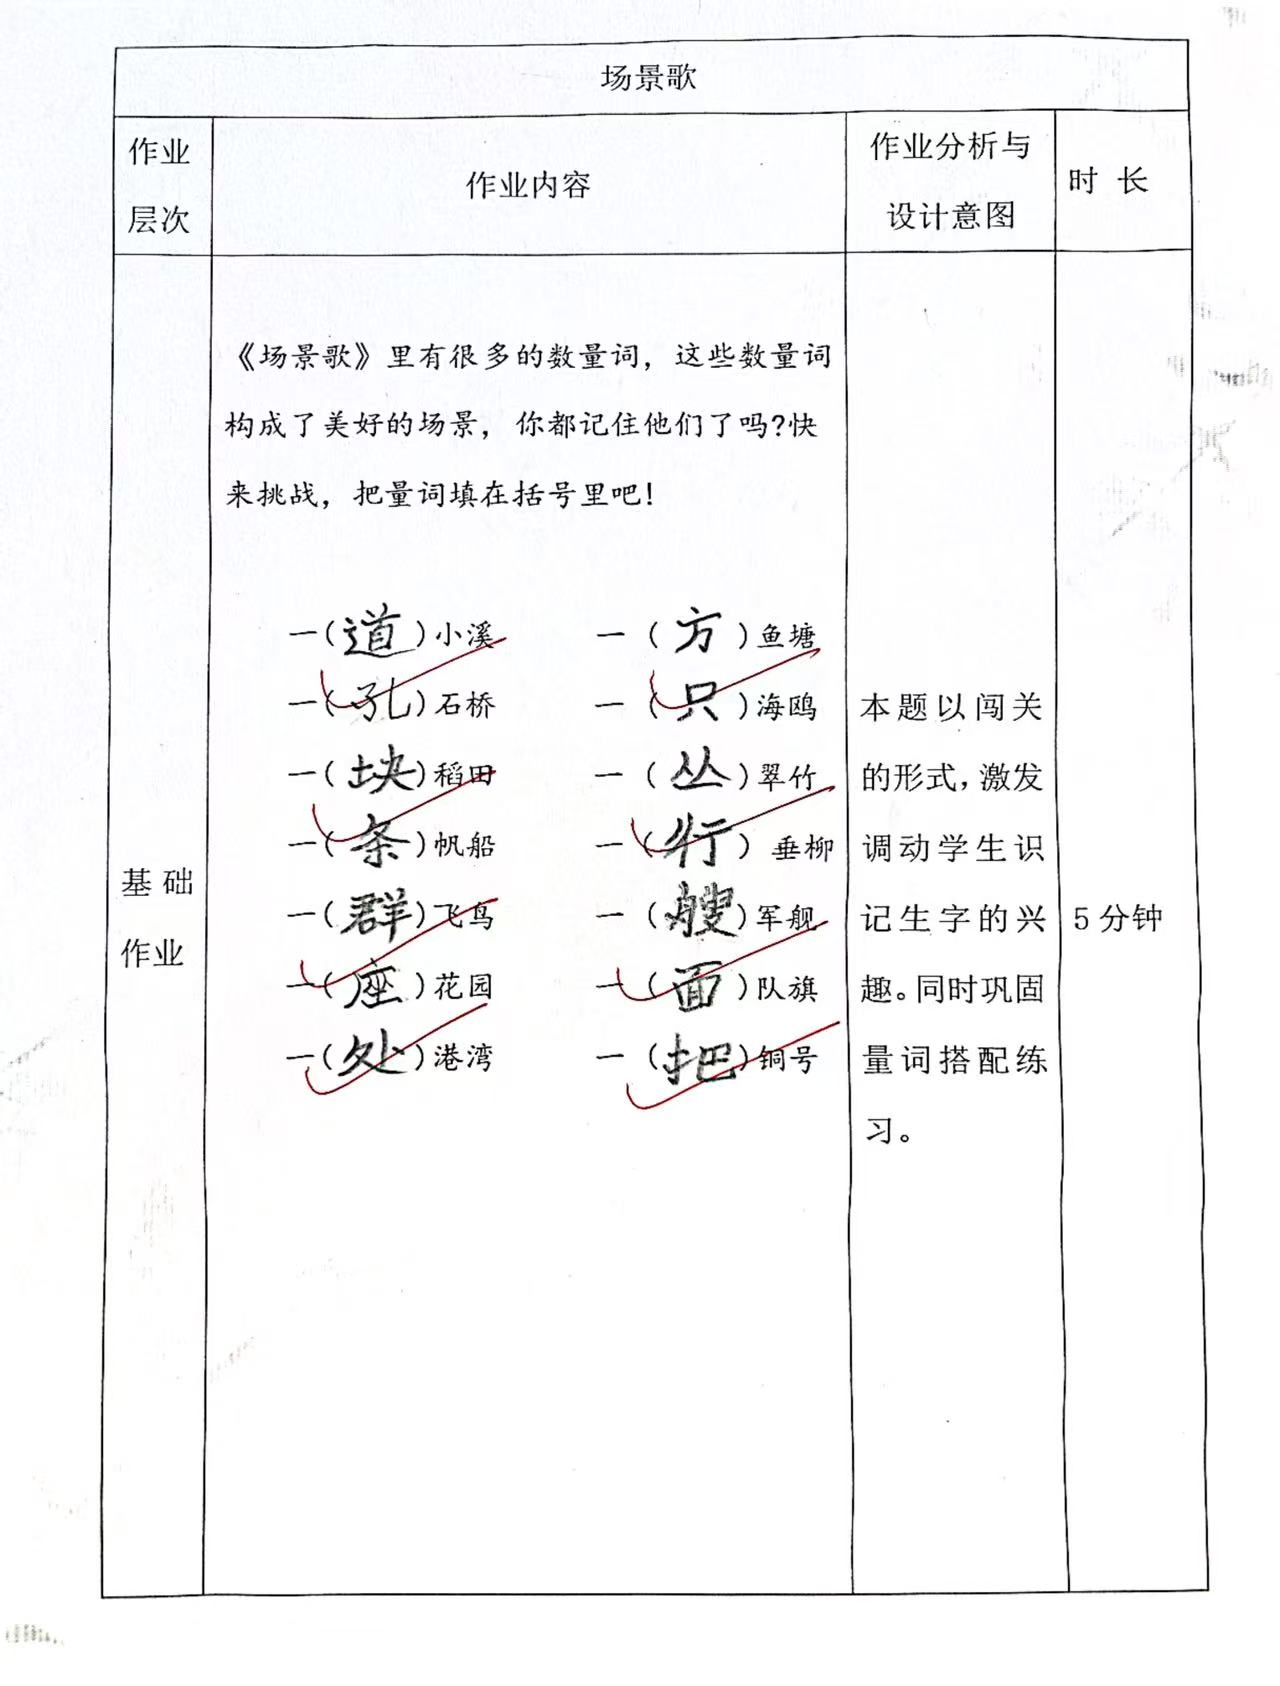 场景歌
作业层次
作业内容
作业分析与设计意图
时 长
基础作业
《场景歌》里有很多的数量词，这些数量词
构成了美好的场景，你都记住他们了吗?快
来挑战，把量词填在括号里吧！
一(道)小溪 一（方）鱼塘
一(孔)石桥 一（只）海鸥
一(块)稻田 一（丛）翠竹
一(条)帆船 一（行）垂柳
一(群)飞鸟 一（艘）军舰
一(座)花园 一（面）队旗
一(处)港湾 一（把）铜号
本题以闯关
的形式，激发
调动学生识
记生字的兴
趣。同时巩固
量词搭配练
习。
5分钟